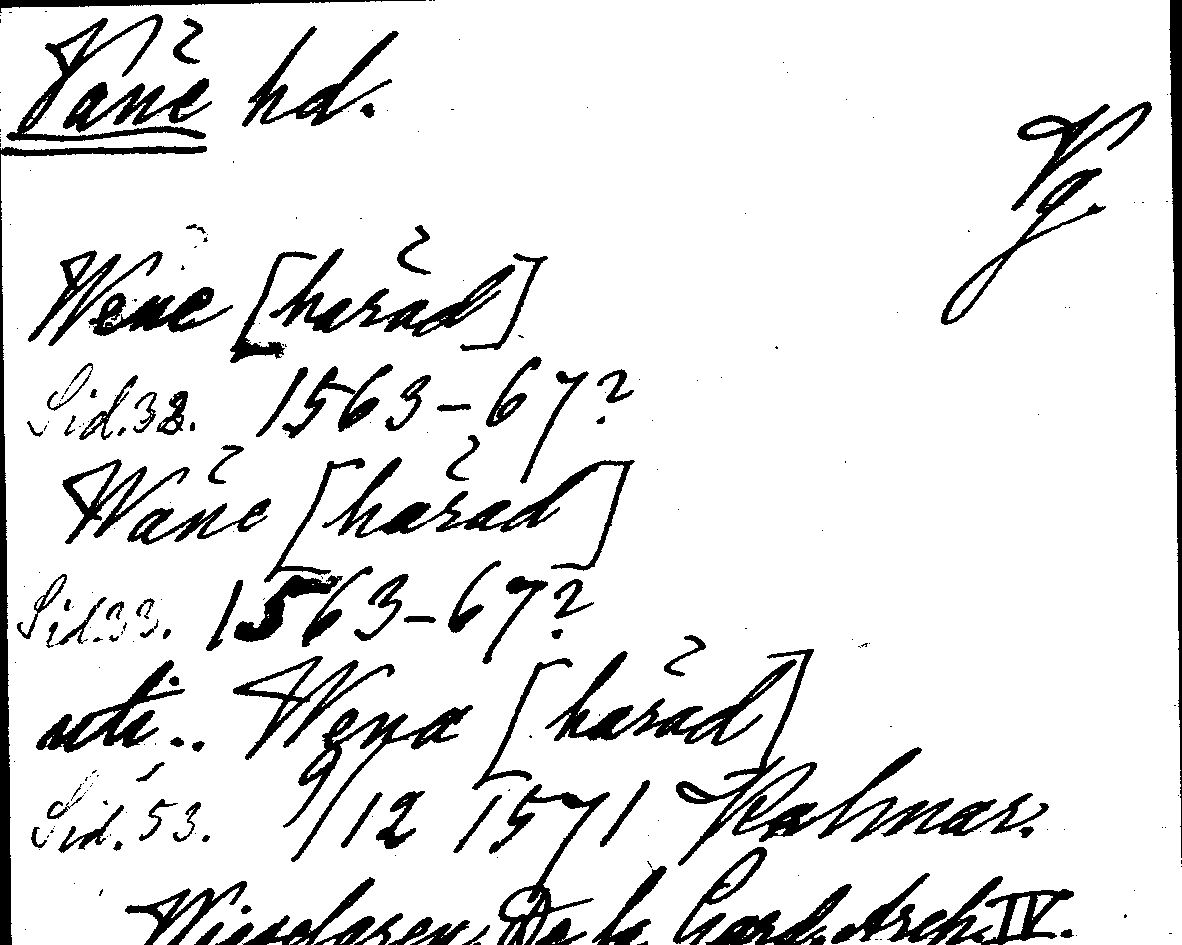 Våne hd.
Vg.
Wene [härad]
Sid. 32. 1563-67?
Wåne [härad]
Sid. 33. 1563-67?
uti.. Wena [härad]
Sid. 53. 9/12 1571 Kalmar.
Wieselgren, De la Gard. Arch. IV.